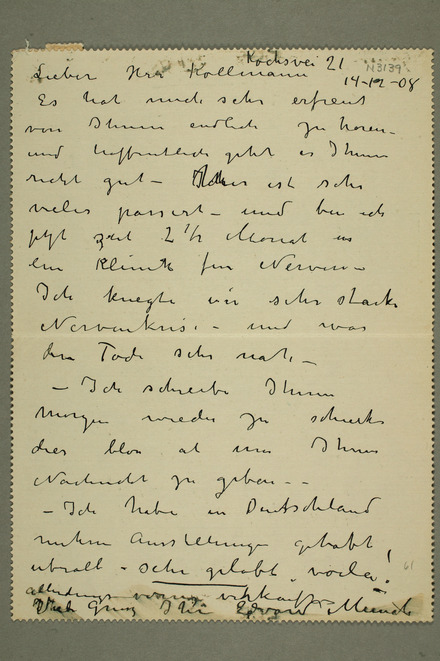 Kochsvei 21
N3139
14-12-08
Lieber Herr Kollmann
Es hat mich sehr erfreut
von Ihnen endlich zu hören -
und hoffentlich geht es Ihnen
recht gut - ist sehr
vieles passiert - und bin ich
jetzt zeit 2 1/2 Monat in
ein Klinik für Nerven -
Ich kriegte eine sehr starke
Nervenkrise - und war
dem Tode sehr nah. -
- Ich schreibe Ihnen
Morgen wieder zu schicke
dies blos al um Ihnen
Nachricht zu geben - -
- Ich habe in Deutschland
mehrere Ausstellunge gehabt
überall - sehr gelobt,
61
allerdings wenig verkauft -
Viele Gruss Ihr Edvard Munch